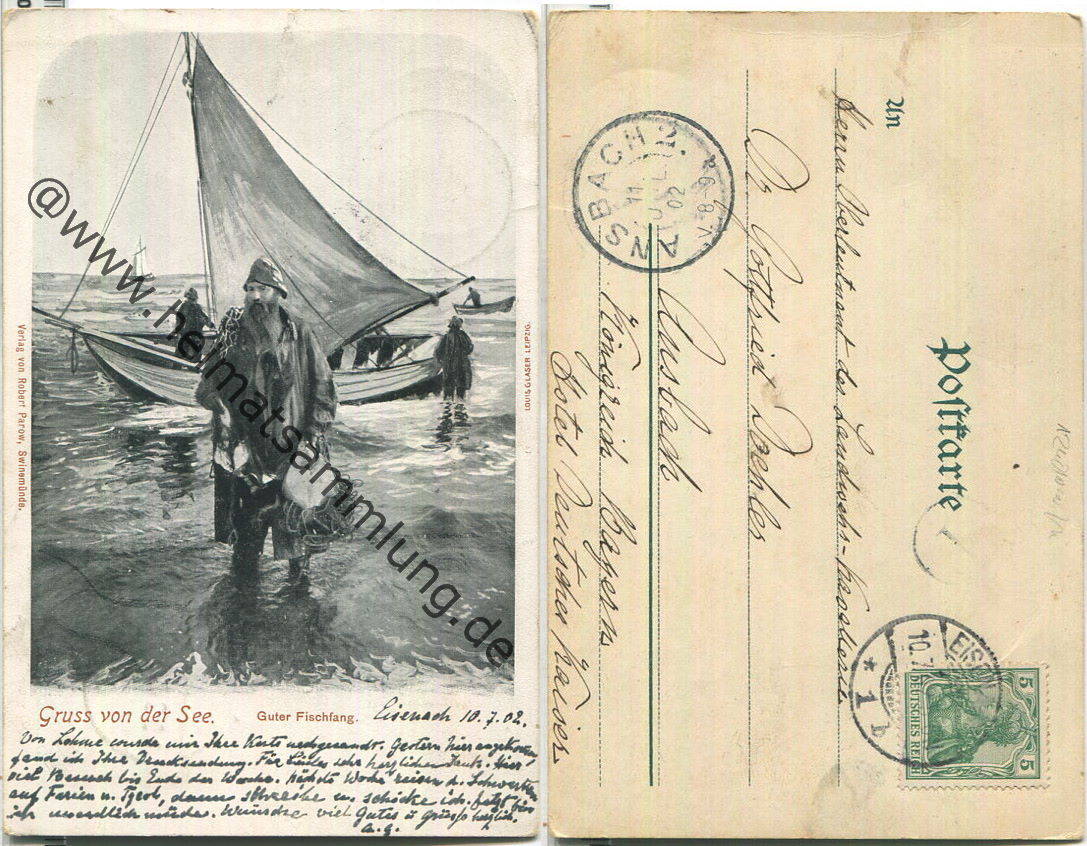 @www.heimatsammlung.de
Verlag von Robert Parow, Swinemünde.
LOUIS GLASER LEIPZIG.
Gruss von der See. Guter Fischfang. Eisenach 10.7.02.
Von Lohme wurde mir Ihre Karte nachgesandt. Gestern hier angekommen
fand ich Ihre Drucksendung. Für beides sehr herzlichen Dank. Hier
viel Besuch bis Ende der Woche. Nächste Woche reisen d.
auf Ferien n. Tyrol, dann schreibe u. schicke ich. Jetzt bin
ich unendlich müde. Wünsche viel Gutes u grüsse herzlich.
a.g.
Postkarte
An
Herrn Oberleutnant der Landwehr-Kavallerie
Dr Gottfried
Ansbach
Königreich Bayern
Hotel Deutscher Kaiser
ANSBACH 2.
11 JUL 02
6-8 V.
EISE
10.7
* 1 b
5 5
DEUTSCHES REICH
5 5